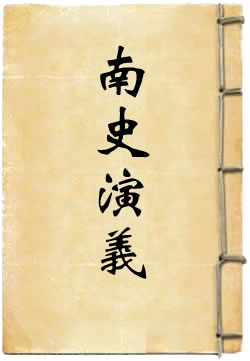 南史演義